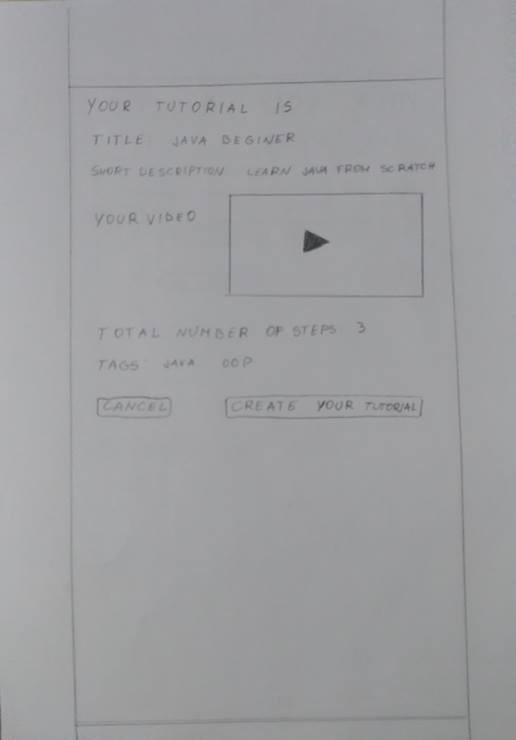 YOUR TUTORIAL IS
TITLE: JAVA BEGINER
SHORT DESCRIPTION: LEARN JAVA FROM SCRATCH
YOUR VIDEO
TOTAL NUMBER OF STEPS 3
TAGS: JAVA OOP
CANCEL CREATE YOUR TUTORIAL